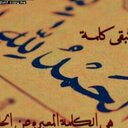 تبقى كلمة
الحمد لله
هي الكلمة المعبرة عن